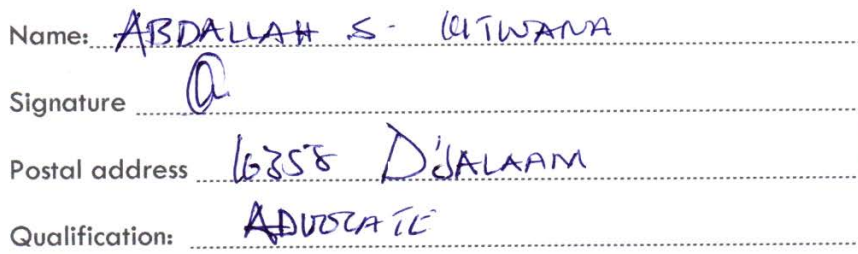 Name: ABDALLAH S. KITWANA
Signature
Postal address 16358 D'SALAAM
Qualification: ADVOCATE